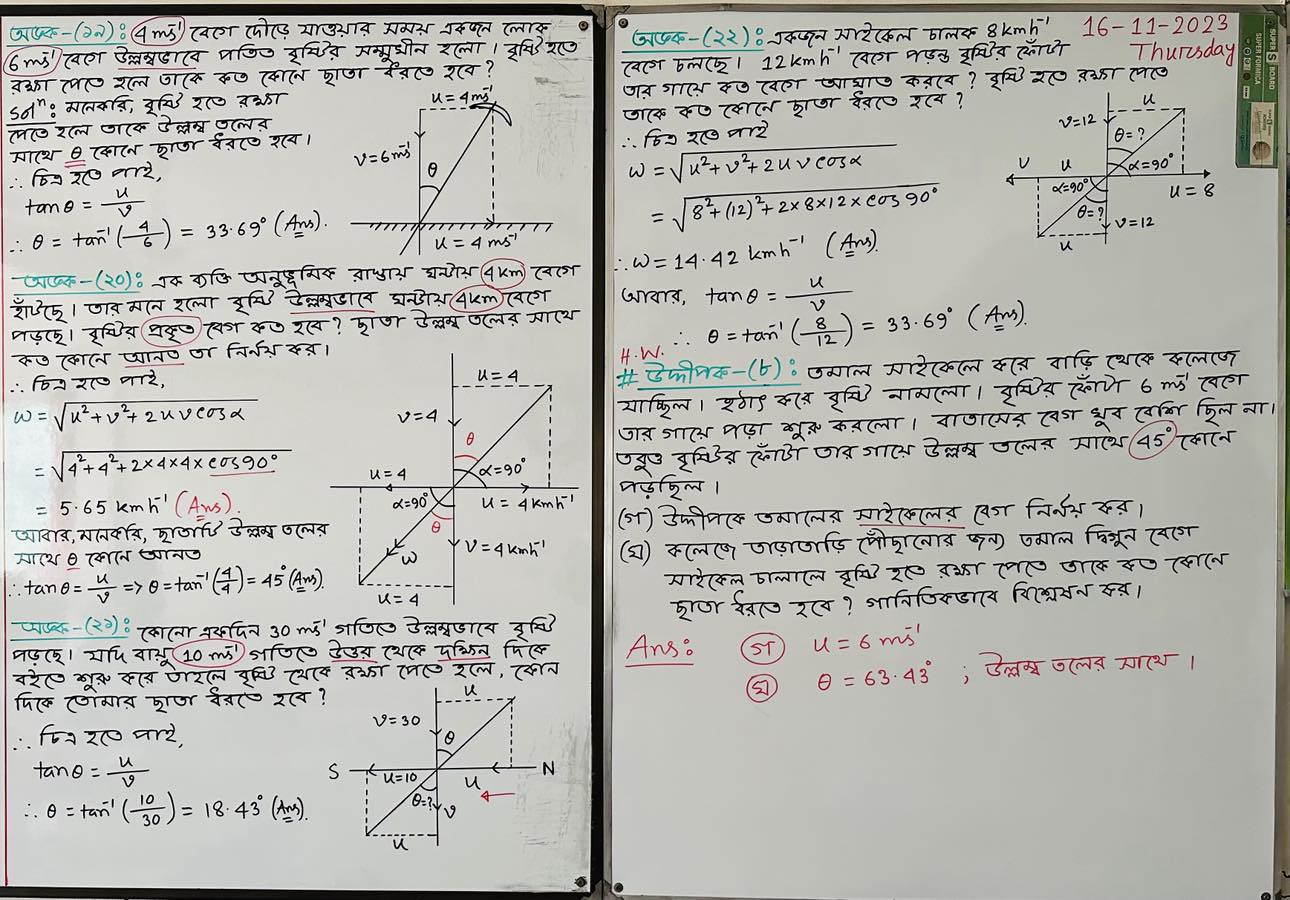 অংক-(১৯): 4 ms⁻¹ বেগে দৌড়ে যাওয়ার সময় একজন লোক
6 ms⁻¹ বেগে উল্লম্বভাবে পতিত বৃষ্টির সম্মুখীন হলো। বৃষ্টি হতে
রক্ষা পেতে হলে তাকে কত কোনে ছাতা ধরতে হবে?
Solⁿ: মনেকরি, বৃষ্টি হতে রক্ষা
পেতে হলে তাকে উল্লম্ব তলের
সাথে θ কোনে ছাতা ধরতে হবে।
∴ চিত্র হতে পাই,
tanθ = u/v
∴ θ = tan⁻¹(4/6) = 33.69° (Ans).
u = 4 ms⁻¹
v = 6 ms⁻¹
θ
u = 4 ms⁻¹
অংক-(২০): এক ব্যক্তি অনুভূমিক রাস্তায় ঘন্টায় 4 km বেগে
হাঁটছে। তার মনে হলো বৃষ্টি উল্লম্বভাবে ঘন্টায় 4 km বেগে
পড়ছে। বৃষ্টির প্রকৃত বেগ কত হবে? ছাতা উল্লম্ব তলের সাথে
কত কোনে আনত তা নির্নয় কর।
∴ চিত্র হতে পাই,
w = √(u² + v² + 2uv cosα)
= √(4² + 4² + 2×4×4×cos90°)
= 5.65 kmh⁻¹ (Ans).
আবার, মনেকরি, ছাতাটি উল্লম্ব তলের
সাথে θ কোনে আনত
∴ tanθ = u/v => θ = tan⁻¹(4/4) = 45° (Ans).
u = 4
v = 4
θ
u = 4 α = 90°
α = 90° u = 4 kmh⁻¹
θ
w v = 4 kmh⁻¹
u = 4
অংক-(২১): কোনো একদিন 30 ms⁻¹ গতিতে উল্লম্বভাবে বৃষ্টি
পড়ছে। যদি বায়ু 10 ms⁻¹ গতিতে উত্তর থেকে দক্ষিন দিকে
বইতে শুরু করে তাহলে বৃষ্টি থেকে রক্ষা পেতে হলে, কোন
দিকে তোমার ছাতা ধরতে হবে?
∴ চিত্র হতে পাই,
tanθ = u/v
∴ θ = tan⁻¹(10/30) = 18.43° (Ans).
u
v = 30
θ
S N
u = 10 u
θ = ? v
u
16-11-2023
Thursday
অংক-(২২): একজন সাইকেল চালক 8 kmh⁻¹
বেগে চলছে। 12 kmh⁻¹ বেগে পড়ন্ত বৃষ্টির ফোঁটা
তার গায়ে কত বেগে আঘাত করবে? বৃষ্টি হতে রক্ষা পেতে
তাকে কত কোনে ছাতা ধরতে হবে?
∴ চিত্র হতে পাই
w = √(u² + v² + 2uv cosα)
= √(8² + (12)² + 2×8×12×cos90°)
∴ w = 14.42 kmh⁻¹ (Ans).
আবার, tanθ = u/v
∴ θ = tan⁻¹(8/12) = 33.69° (Ans).
u
v = 12
θ = ?
u u α = 90°
α = 90° u = 8
θ = ?
v = 12
u
H.W.
# উদ্দীপক-(৮): তমাল সাইকেলে করে বাড়ি থেকে কলেজে
যাচ্ছিল। হঠাৎ করে বৃষ্টি নামলো। বৃষ্টির ফোঁটা 6 ms⁻¹ বেগে
তার গায়ে পড়া শুরু করলো। বাতাসের বেগ খুব বেশি ছিল না।
তবুও বৃষ্টির ফোঁটা তার গায়ে উল্লম্ব তলের সাথে 45° কোনে
পড়ছিল।
(গ) উদ্দীপকে তমালের সাইকেলের বেগ নির্নয় কর।
(ঘ) কলেজে তাড়াতাড়ি পৌঁছানোর জন্য তমাল দ্বিগুন বেগে
সাইকেল চালালে বৃষ্টি হতে রক্ষা পেতে তাকে কত কোনে
ছাতা ধরতে হবে? গানিতিকভাবে বিশ্লেষন কর।
Ans: (গ) u = 6 ms⁻¹
(ঘ) θ = 63.43° ; উল্লম্ব তলের সাথে।
SUPER BOARD
SUPER FORMICA